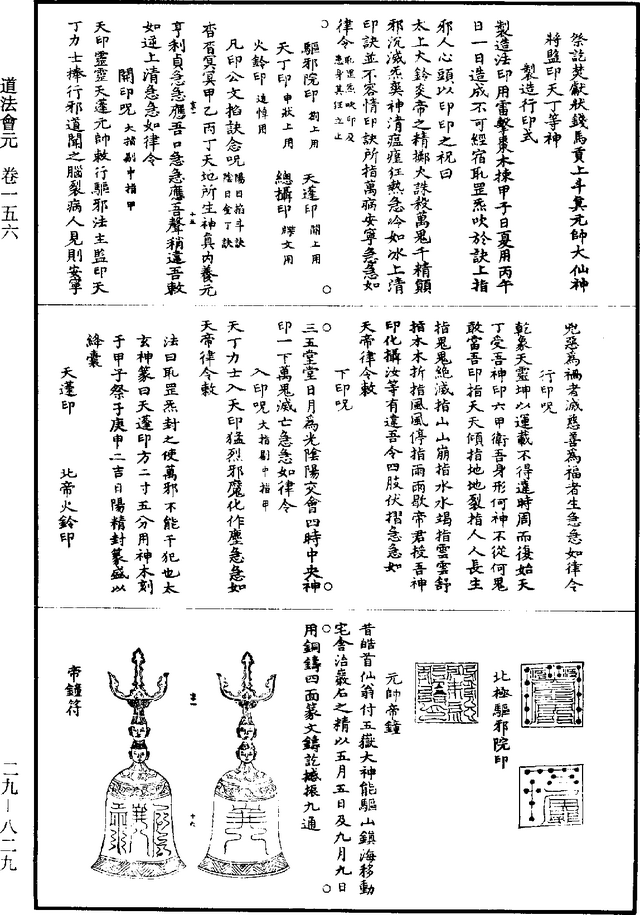 祭訖焚獻狀錢馬貢上斗箕元帥大仙神
將監印天丁等神
製造行印式
製造法印用雷擊棗木揀甲子日夏用丙午
日一日造成不可經宿耴罡炁吹於訣上指
邪人心頭以印印之祝曰
太上大鈴炎帝之精擲火誅殺萬鬼千精顛
邪沉滅炁奭神清瘟㾮狂熱急冷如冰上清
印訣並不容情印訣所指萬病安寧急急如
律令
驅邪院印 劄上用 天蓬印 關上用
天丁印 申狀上用 總攝印 牒文用
火鈴印 追悼用
凡印公文掐訣念呪 陽日掐斗訣 陰日金丁訣
杳杳冥冥甲乙丙丁天地所生神真內養元
亨利貞急急應吾口急急應吾聲稍違吾敕
如逆上清急急如律令
開印呪 大指剔中指甲
天印靈靈天蓬元帥敕行驅邪法主監印天
丁力士捧行邪道聞之腦裂病人見則安寧
兇惡為禍者滅慈善為福者生急急如律令
行印呪
乾象天靈坤以運載不得違時周而復始天
丁受吾神印六甲衛吾身形何神不從何鬼
敢當吾印指天天傾指地地裂指人人長生
指鬼鬼絕滅指山山崩指水水竭指雲雲舒
指木木折指風風停指雨雨歇帝君授吾神
印化攝汝等有違吾令四肢伏摺急急如
天帝律令敕
下印呪
三五堂堂日月為光陰陽交會四時中央神
印一下萬鬼滅亡急急如律令
入印呪 大指剔中指甲
天丁力士入天印猛烈邪魔化作塵急急如
天帝律令敕
法曰耴罡炁封之使萬邪不能干犯也太
玄神篆曰天蓬印方二寸五分用神木刻
于甲子祭子庚申二吉日陽精封篆盛以
絳囊
天蓬印
北帝火鈴印
北極驅邪院印
元帥帝鐘
昔皓首仙翁付五嶽大神能驅山鎮海移動
宅舍治巖石之精以五月五日及九月九日
用銅鑄四面篆文鑄訖撼振九通
帝鐘符
道法會元 卷一五六
二九—八二九